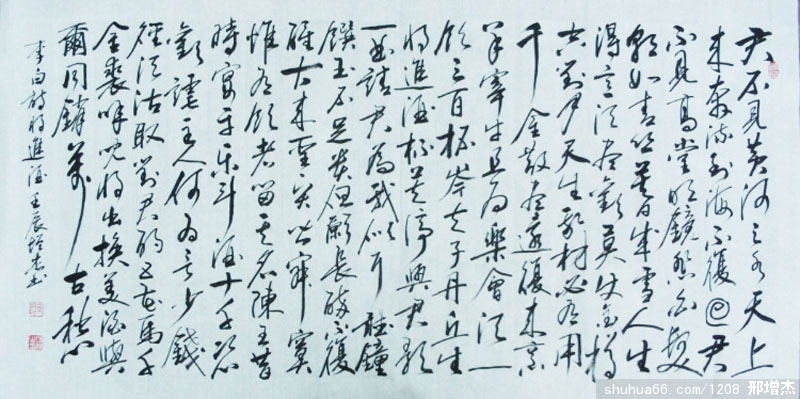 君不见黄河之水天上
来奔流到海不復回君
不見高堂明鏡悲白髮
朝如青丝暮成雪人生
得意须尽歡莫使金樽
空對月天生我材必有用
千金散盡還復来烹
羊宰牛且為樂會须一
饮三百杯岑夫子丹丘生
将進酒杯莫停與君歌
一曲請君為我倾耳聽鐘
饌玉不足贵但願长醉不復
醒古来聖贤皆寂寞
惟有饮者留其名陳王昔
時宴平乐斗酒十千恣
歡謔主人何為言少錢
徑须沽取對君酌五花馬千
金裘呼兒将出换美酒與
爾同銷萬古愁
李白詩将進酒壬辰增杰书
shuhua66.com/1208 邢增杰